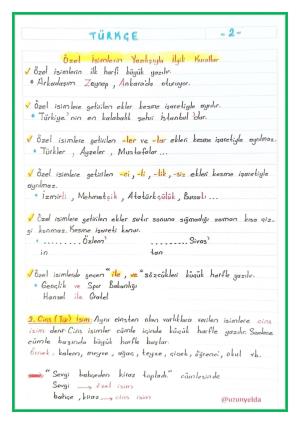 TÜRKÇE
-2-
Özel İsimlerin Yazılışıyla İlgili Kurallar
✓ Özel isimlerin ilk harfi büyük yazılır.
• Arkadaşım Zeynep, Ankara'da oturuyor.
✓ Özel isimlere getirilen ekler kesme işaretiyle ayrılır.
• Türkiye'nin en kalabalık şehri İstanbul'dur.
✓ Özel isimlere getirilen -ler ve -lar ekleri kesme işaretiyle ayrılmaz.
• Türkler, Ayşeler, Mustafalar ...
✓ Özel isimlere getirilen -ci, -li, -lik, -siz ekleri kesme işaretiyle
ayrılmaz.
• İzmirli, Mehmetçik, Atatürkçülük, Bursalı ...
✓ Özel isimlere getirilen ekler satır sonuna sığmadığı zaman kısa çiz-
gi konmaz. Kesme işareti konur.
• .......... Özlem' .......... Sivas'
in tan
✓ Özel isimlerde geçen "ile, ve" sözcükleri küçük harfle yazılır.
• Gençlik ve Spor Bakanlığı
Hansel ile Gratel
2. Cins (Tür) İsim: Aynı cinsten olan varlıklara verilen isimlere cins
isim denir. Cins isimler cümle içinde küçük harfle yazılır. Sadece
cümle başında büyük harfle başlar.
Örnek, kalem, meyve, ağaç, teyze, çiçek, öğrenci, okul vb.
"Sevgi bahçeden kiraz topladı." cümlesinde
Sevgi → özel isim
bahçe, kiraz → cins isim
@uzunyelda